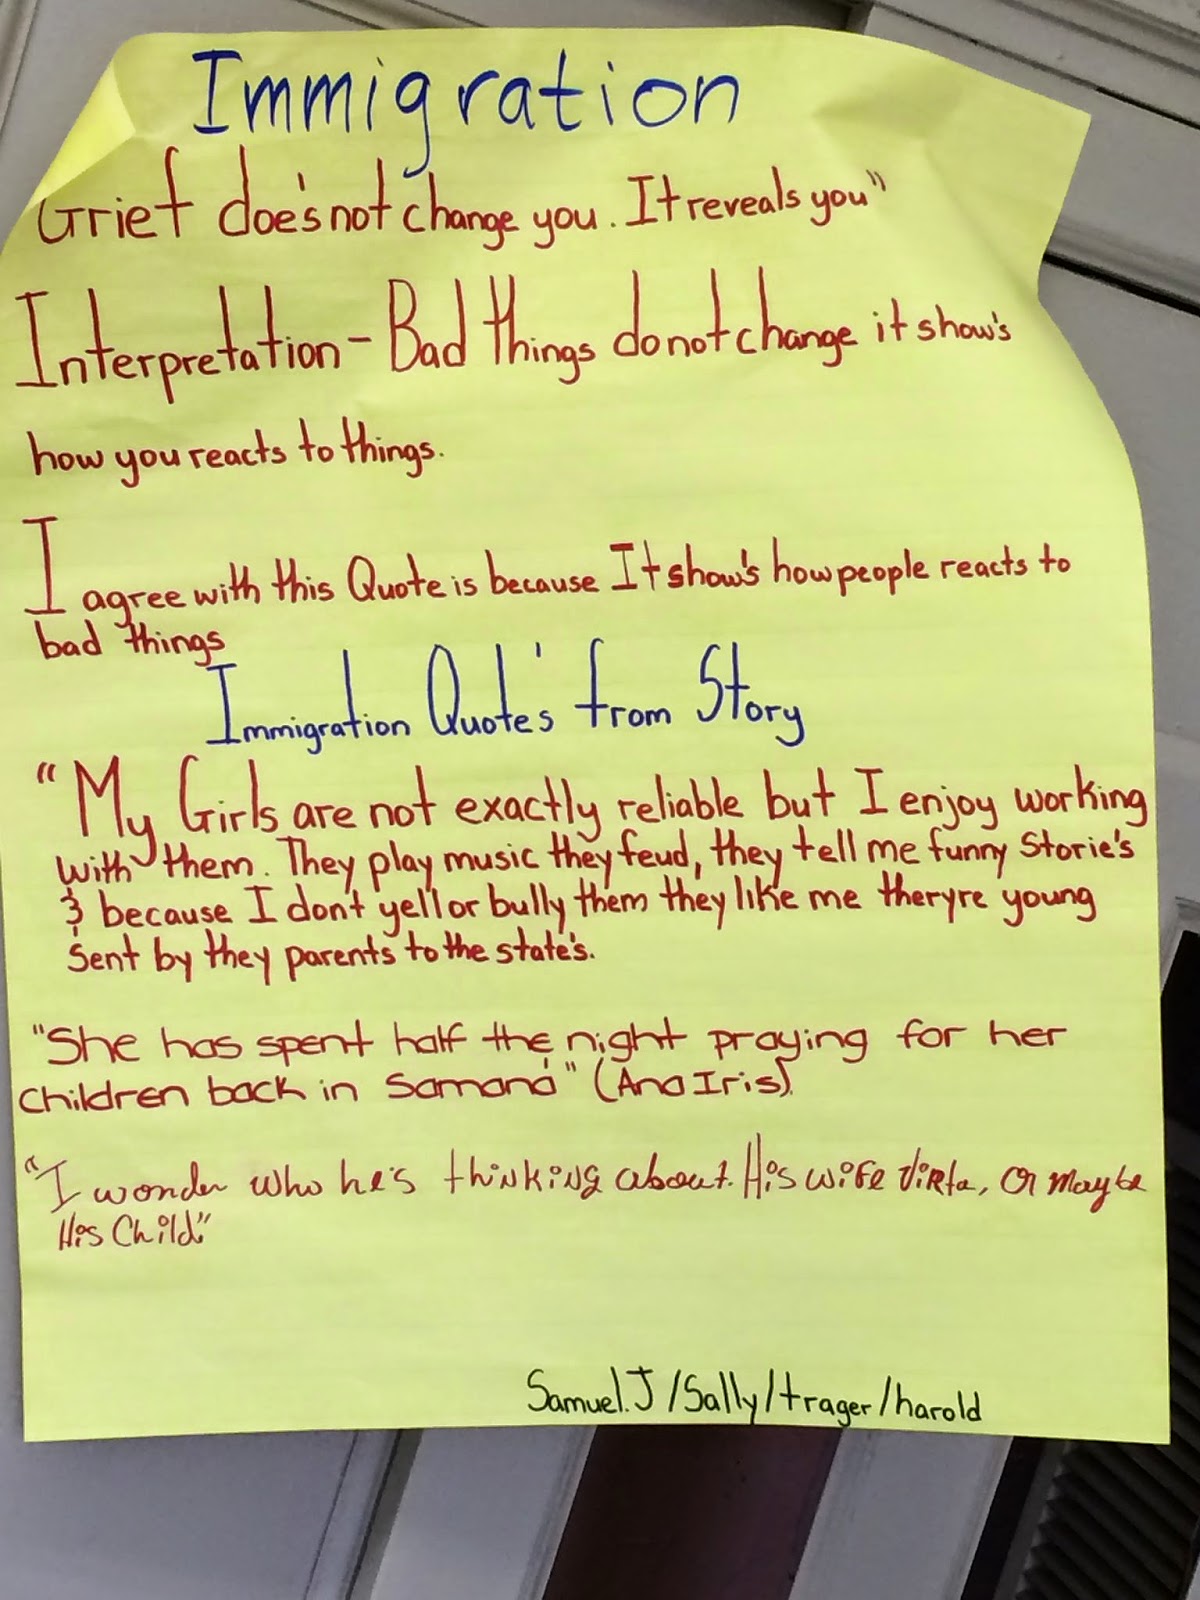 Immigration
Grief doe'snot change you. It reveals you"
Interpretation - Bad things do not change it show's
how you reacts to things.
I agree with this Quote is because It show's how people reacts to
bad things
Immigration Quote's from Story
"My Girls are not exactly reliable but I enjoy working
with them. They play music they feud, they tell me funny Storie's
& because I don't yell or bully them they like me theryre young
Sent by they parents to the state's.
"She has spent half the night praying for her
children back in Samaná" (Ana Iris).
"I wonder who he's thinking about. His wife Virta, or maybe
His Child."
Samuel.J/Sally/trager/harold